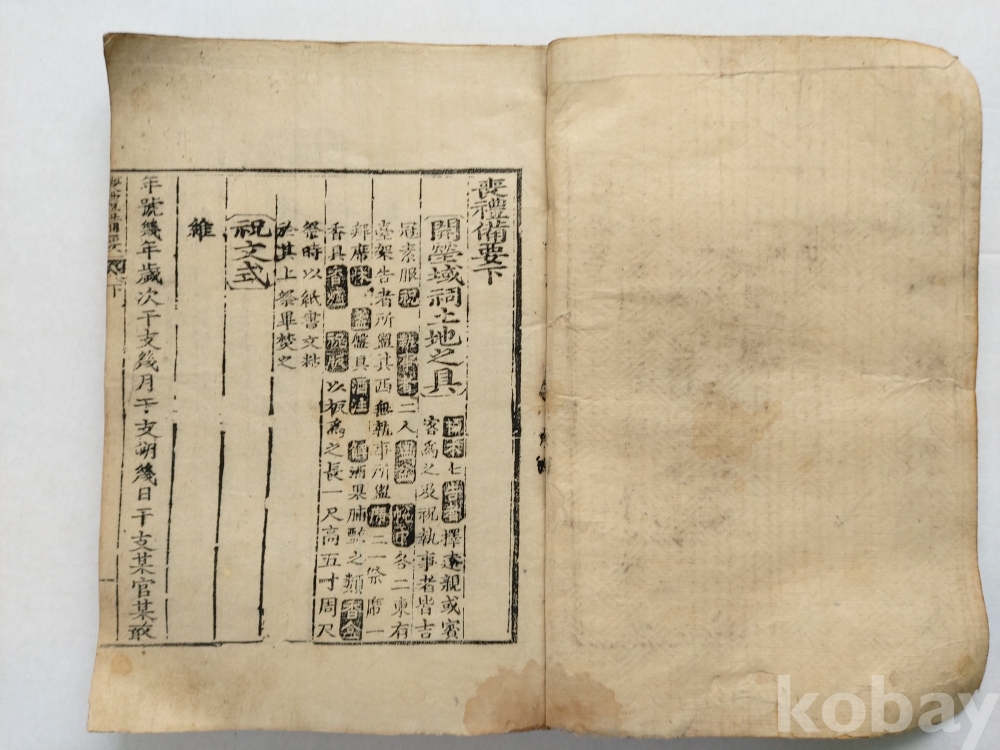 喪禮備要下
開塋域祠土地之具
標木七告者擇遠親或賓
客爲之及祝執事者皆吉
冠素服祝執事者二人盥盆帨巾各二東有
臺架告者所盥其西無執事所盥席二一祭席一
拜席牀盞盤具酒注饌酒果脯醢之類香盒
香具香爐祝版以板爲之長一尺高五寸周尺
祭時以紙書文粘
於其上祭畢焚之
祝文式
維
年號幾年歲次干支幾月干支朔幾日干支某官某敢
下
kobay